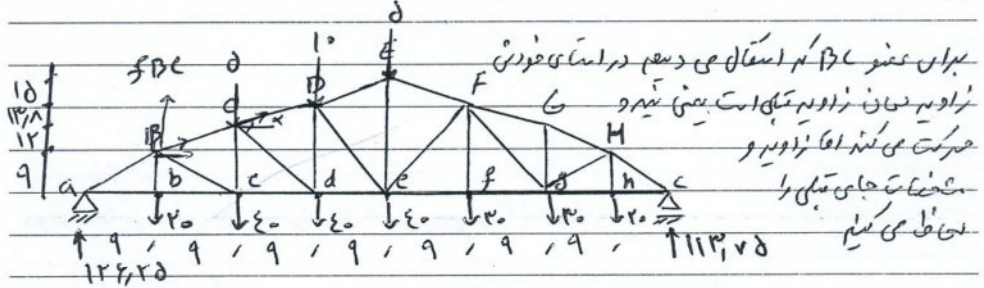 ۵
۵ ۱۰ E
fBC
D F
C α G
B H
۱۵
۱۳٫۸
۱۲
۹
a b c d e f g h c
۲۰ ۴۰ ۴۰ ۴۰ ۳۰ ۳۰ ۲۰
۹ , ۹ , ۹ , ۹ , ۹ , ۹ , ۹ ,
۱۲۶٫۲۵ ۱۱۳٫۷۵
برای عضو BC که انتقال می دهیم در راستای خودش
زاویه همان زاویه قبلی است یعنی نیرو
حرکت می کند اما زاویه و
مشخصات جای قبلی را
حفظ می کنیم